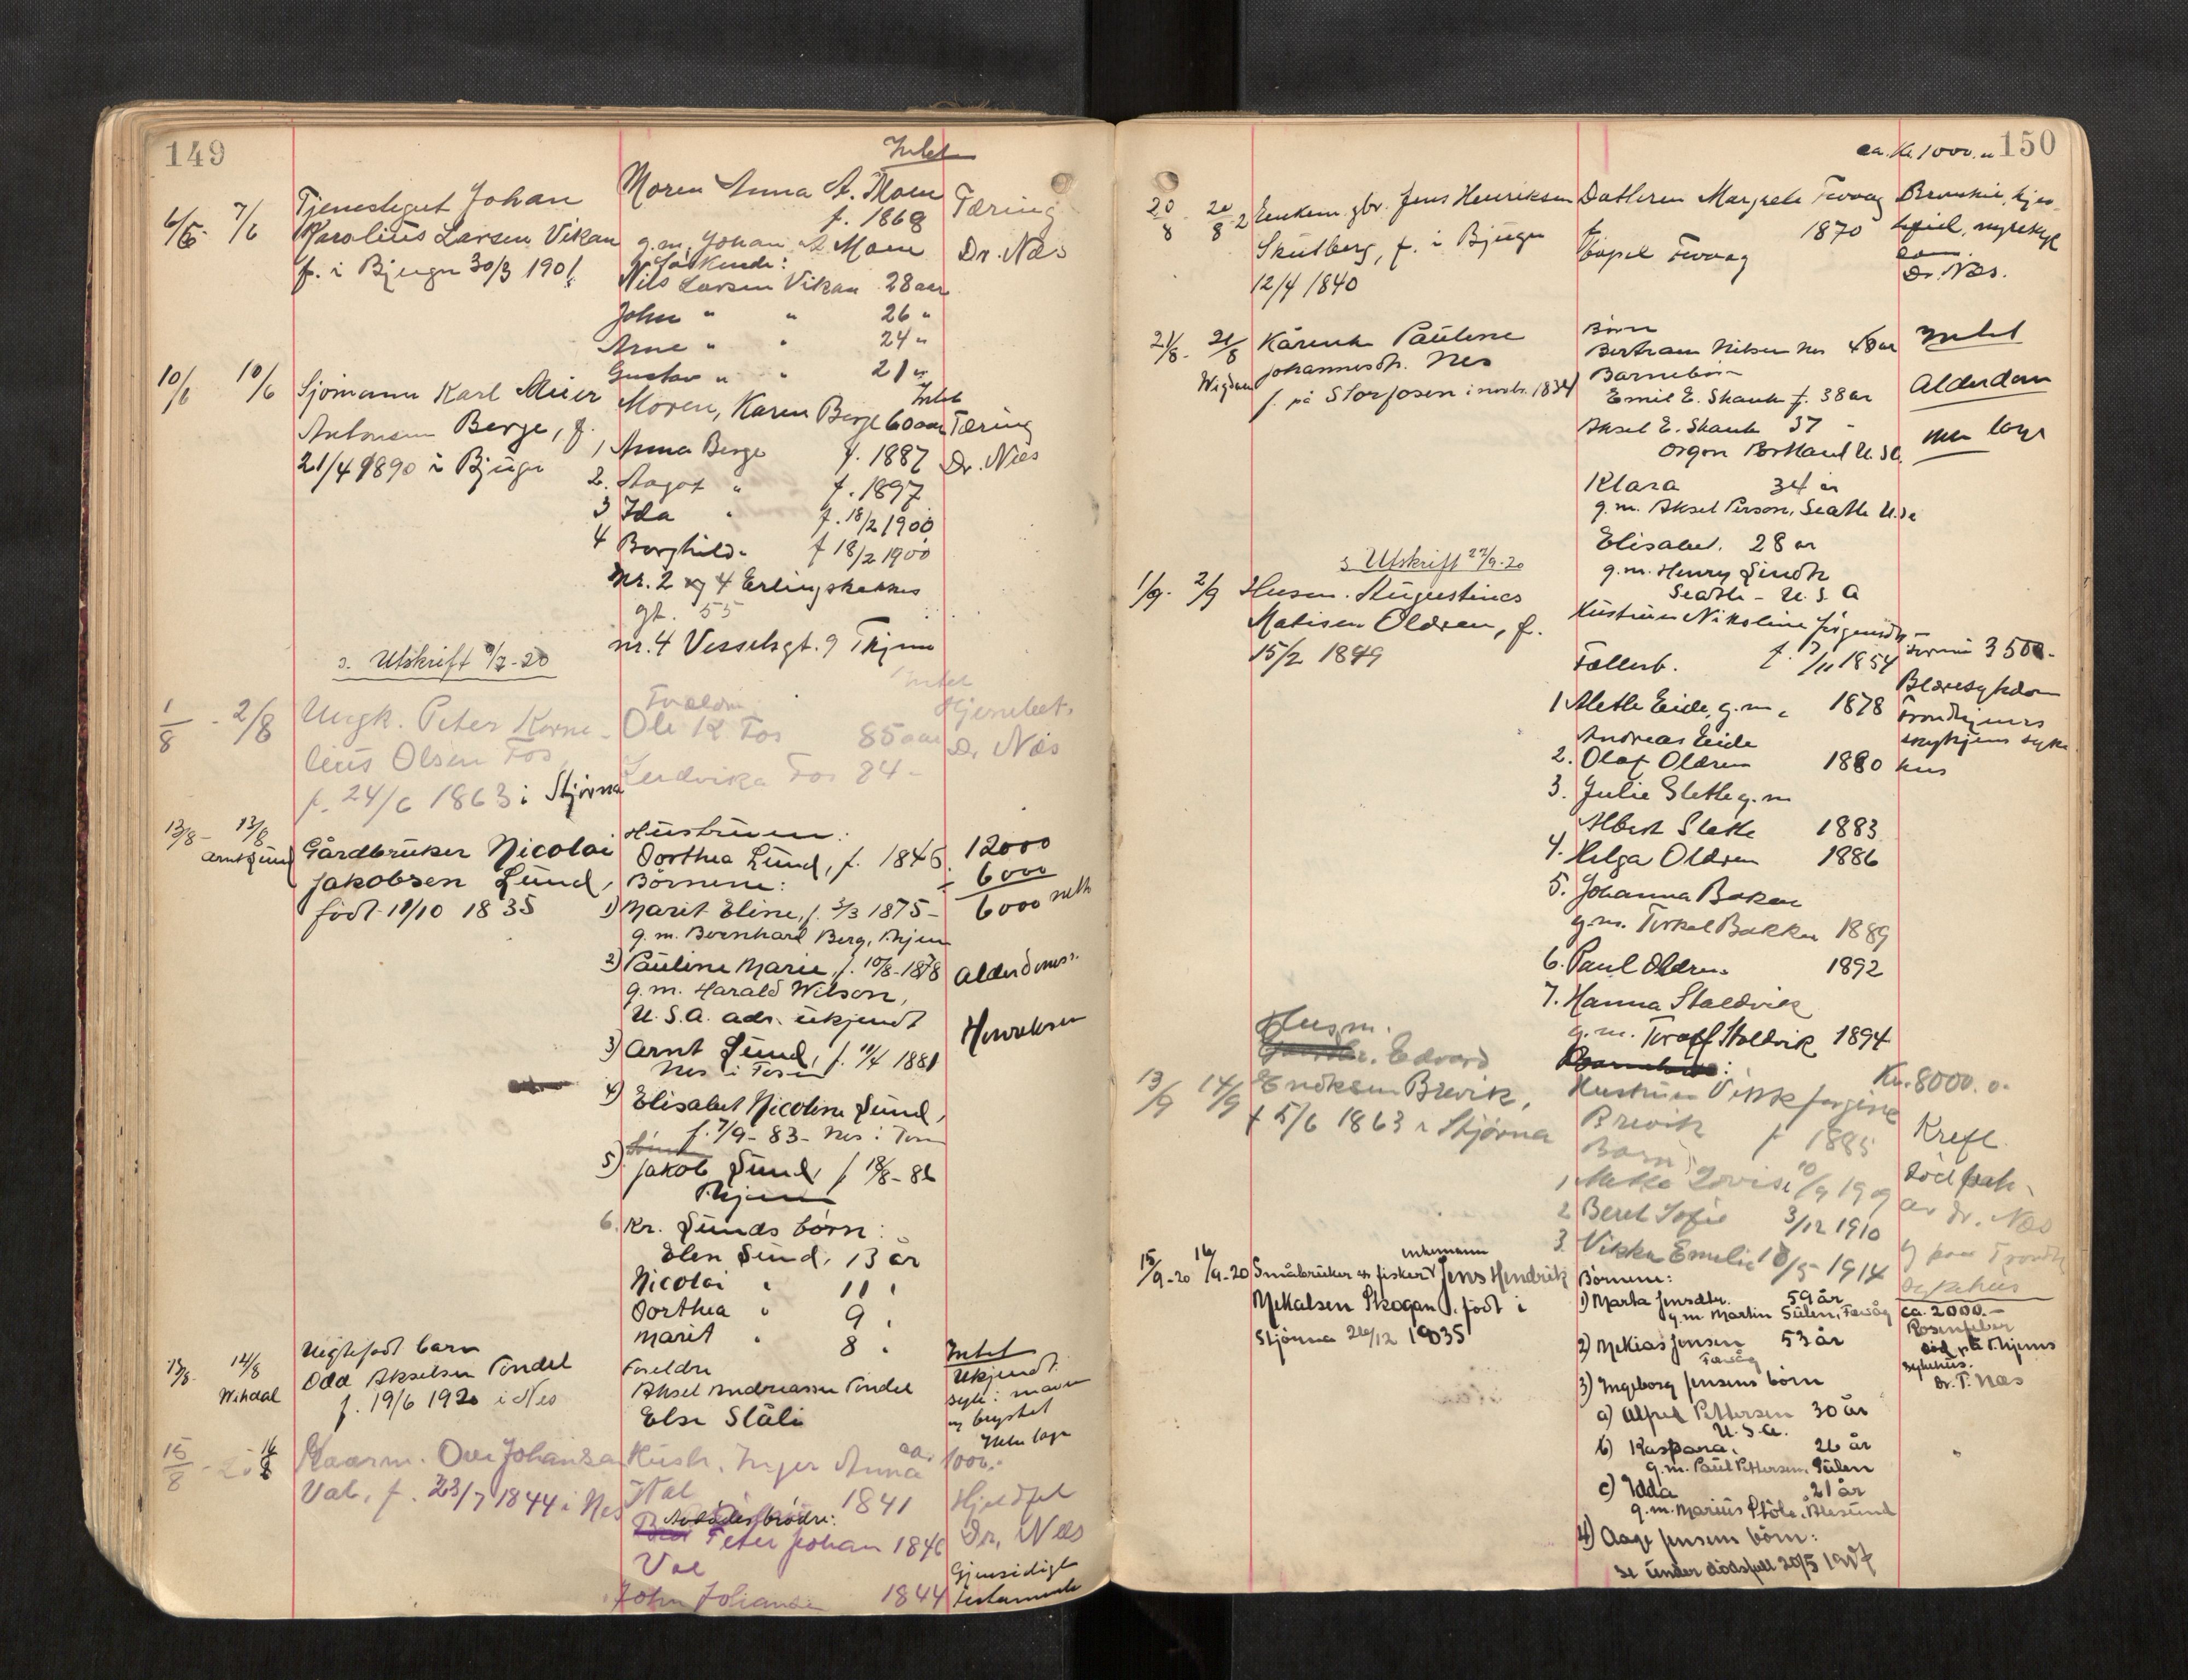 149
Intet
6/6 7/6
Tjenestegut Johan
Karolius Larsen Vikan
f. i Bjugn 30/3 1901
Moren Anna A. Moen
f. 1868
g.m. Johan A Moen
Søskende:
Nils Larsen Vikan 28 aar
John " " 26 "
Arne " " 24 "
Gustav " " 21 "
Tæring
Dr. Næs
10/6 10/6
Sjömann Karl Meier
Antonsen Berge, f.
21/4 1890 i Bjugn
Intet
Moren, Karen Berge 60 aar
1 Anna Berge f. 1887
2. Aagot " f. 1897
3 Ida " f. 18/2 1900
4 Borghild " f 18/2 1900
Nr. 2 og 4 Erlingskakkes
gt. 55
nr. 4 Vesselsgt. 9 Thjem
Tæring
Dr. Næs
s. Utskrift -20
1/8 - 2/8
Ungk. Peter Korne-
lius Olsen Fos
f. 24/6 1863 i Stjørna
Intet
Forældre
Ole K Fos 85 aar
Ludvika Fos 84 -
Hjertelet.
Dr. Næs
13/8 - 13/8
Arnt Lund
Gårdbruker Nicolai
Jakobsen Lund,
født 11/10 1835
Hustruen:
Dorthea Lund, f. 1846.
Børnene:
1) Marit Eline, f. 3/3 1875 -
g.m. Bernhard Berg, Thjem
2) Pauline Marie, f. 10/8-1878
g.m. Harald Wilson,
U.S.A. adr. ukjendt
3) Arnt Lund, f. 11/4 1881
Nes i Fosen
4) Elisabet Nicoline Lund,
f. 7/9 - 83 - Nes i Fosen
5) Jakob Lund, f 18/8 - 86
Thjem
6. Kr. Lunds børn:
Elen Lund, 13 år
Nicolai " 11 "
Dorthea " 9 "
Marit " 8 "
12000
- 6000
6000 netto
Alderdoms.
Henriksen
13/8 14/8
Wikdal
Uegtefødt barn
Odd Akselsen Tindel
f. 19/6 1920 i Nes
Foreldre
Aksel Andreassen Tindel
Else Ståli
Intet
Ukjendt
syk i maven
og brystet
Uten læge
15/8 -
Kaarm. Ove Johansen
Val, f. 23/7 1844 i Nes
Hustr. Inger Anna
Val 1841
Avdødes brødre:
Peter Johan 1846
Val
John Johansen 1844
ca. 1000.-
Hjertefeil
Dr. Næs
Gjensidigt
testamente
150
ca. kr. 1000.-
20/8 20/8
Enkem. gbr. Jens Henriksen
Skutberg, f. i Bjugn
12/4 1840
Datteren Margrete Fevaag
f. 1870
Fevaag
Dr. Næs.
21/8 - 21/8
Karen Pauline
Johannesdtr. Nes
f. på Storfosen i novbr. 1834
Børn
Bertram Nilsen Nes 48 år
Barnebørn
Emil E. Skauk f. 38 år
Aksel E. Skauk 37 -
Orgon Portland U.S.
Klara 34 år
g.m. Aksel Person, Seatle U.S.
Elisabet. 28 år
g.m. Henry Lindh
Seatle - U.S.A
Intet
Alderdom
uten læge
s Utskrift 27/9-20
1/9. 2/9
Husm. Augustinus
Matisen Oldren, f.
15/2 1849
Hustruen Nikoline Jørgensdtr
1854
Fællesb.
1 Mette Eide, g.m. 1878
Andreas Eide
2. Olaf Oldren 1880
3. Julie Slette g.m
Albert Slette 1883
4. Helga Oldren 1886
5. Johanna Bakken
g.m. Torkel Bakken 1889
6. Paul Oldren 1892
7. Hanna Staldvik
g.m. Toralf Staldvik 1894
3500-
Blæresykdom
Trondhjems
syke
hus
13/9 14/9
Husm.
Edvard
Eriksen Brevik,
f 5/6 1863 i Stjørna
Hustruen
Brevik f 1885
Barn
1 Lovise 10/9 1909
2 Beret Sofie 3/12 1910
3. Vikka Emelie 1914
Kr. 8000.0.
Kreft.
Død
av Dr. Næs
sykehus
15/9-20 16/9-20
enkemann
Småbruker og fisker Jens Hendrik
Mekalsen Skogan, født i
Stjørna 26/12 1835
Børnene:
1) Marta Jensdtr. 59 år
g.m Martin Sülen, Fevåg
2) Mekias Jensen 53 år
Fevåg
3) Ingeborg Jensens børn
a) Alfred Pettersen 30 år
U.S.A.
b) Kaspara. 26 år
g.m. Paul Pettersen Sülen
c) Idda 21 år
g.m. Marius Støle, Ålesund
4) Aage Jensens børn:
se under dødsfall 20/5 1907
ca. 2000.-
Rosenfeber
død på Thjems
sykehus.
Dr. T. Næs